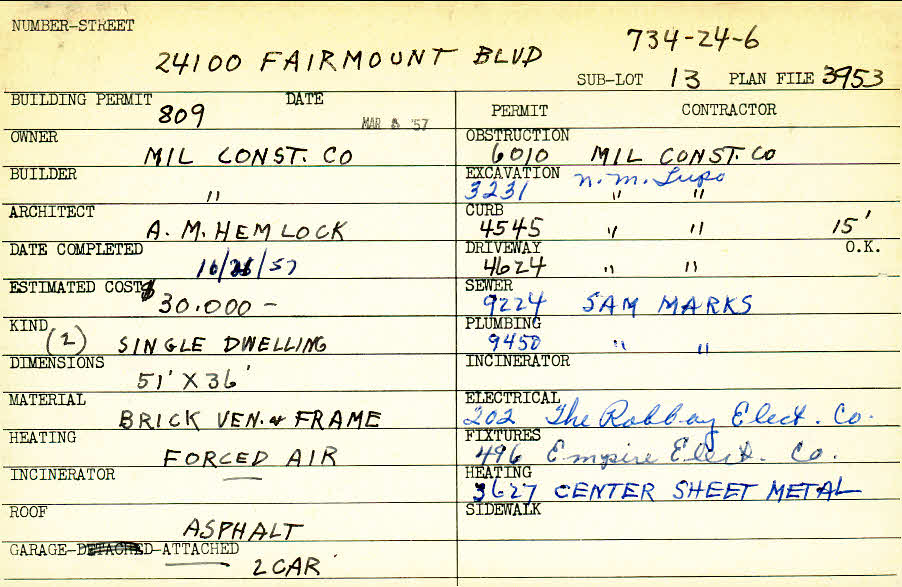 NUMBER-STREET
24100 FAIRMOUNT BLVD
734-24-6
SUB-LOT 13 PLAN FILE 3953
BUILDING PERMIT DATE
809 MAR '57
OWNER
MIL CONST. CO
BUILDER
"
ARCHITECT
A. M. HEMLOCK
DATE COMPLETED
/57
ESTIMATED COST $
30.000 —
KIND
(2) SINGLE DWELLING
DIMENSIONS
51' X 36'
MATERIAL
BRICK VEN. & FRAME
HEATING
FORCED AIR
INCINERATOR
ROOF
ASPHALT
GARAGE-DETACHED-ATTACHED
2 CAR
PERMIT CONTRACTOR
OBSTRUCTION
6010 MIL CONST. CO
EXCAVATION
3231 N. M. Lupo
" "
CURB
4545 " " 15'
DRIVEWAY O.K.
4624 " "
SEWER
9224 SAM MARKS
PLUMBING
9450 " "
INCINERATOR
ELECTRICAL
202 The Robbay Elect. Co.
FIXTURES
496 Empire Elect. Co.
HEATING
3627 CENTER SHEET METAL
SIDEWALK